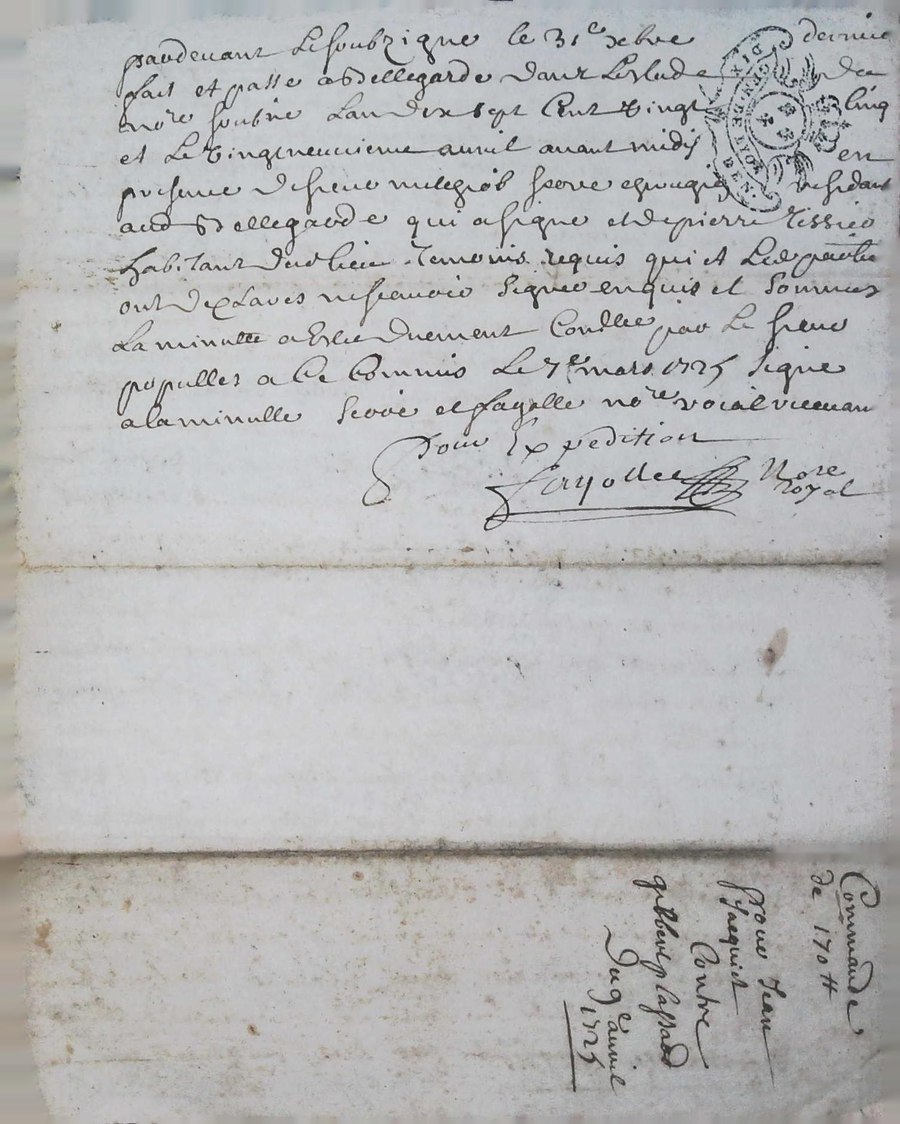 pardevant Le soubzigne le 31e xbre dernie
fait et passe a Bellegarde dans L'estude du
nore soubne Lan dix sept Cent vingt Cinq
et Le vingtneuvieme avril avant midy en
presence de sieur seve residant
aud Bellegarde qui a signe et de pierre Tissier
habitant dud lieu Temoins requis qui et Led partie
ont declares ne scavoir signer enquis et sommes
La minutte a este duement Conllee par Le sieur
populles a Ce Commis Le 7e mars 1725 signe
a la minutte et fayolle nore roial
Pour Expedition
fayolle Nore
Royal
DIX
DEN
Commande
de 170 tt
pour Jean
Jaquiet
Contre
Du 9e avril
1725